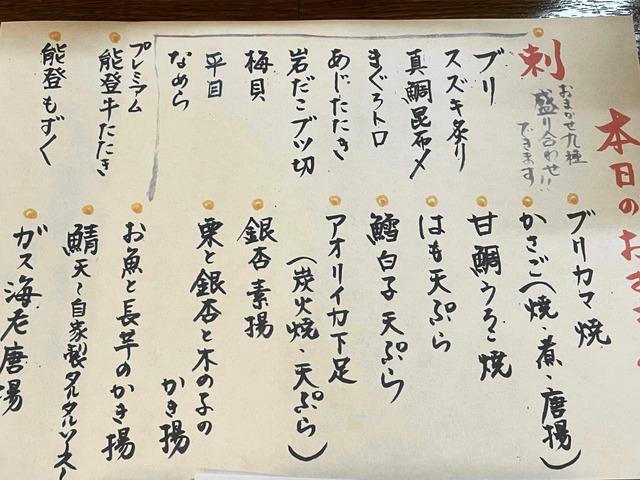 本日のおすすめ
刺
おまかせ九種
盛り合わせ!!
できます
ブリ
スズキ炙り
真鯛昆布〆
まぐろトロ
あじたたき
岩だこブツ切
梅貝
平目
なめら
プレミアム
能登牛たたき
能登もずく
ブリカマ焼
かさご(焼・煮・唐揚)
甘鯛うろこ焼
はも天ぷら
鱈白子天ぷら
アオリイカ下足
(炭火焼・天ぷら)
銀杏素揚
栗と銀杏と木の子の
かき揚
お魚と長芋のかき揚
鯖天〜自家製タルタルソース〜
ガス海老唐揚